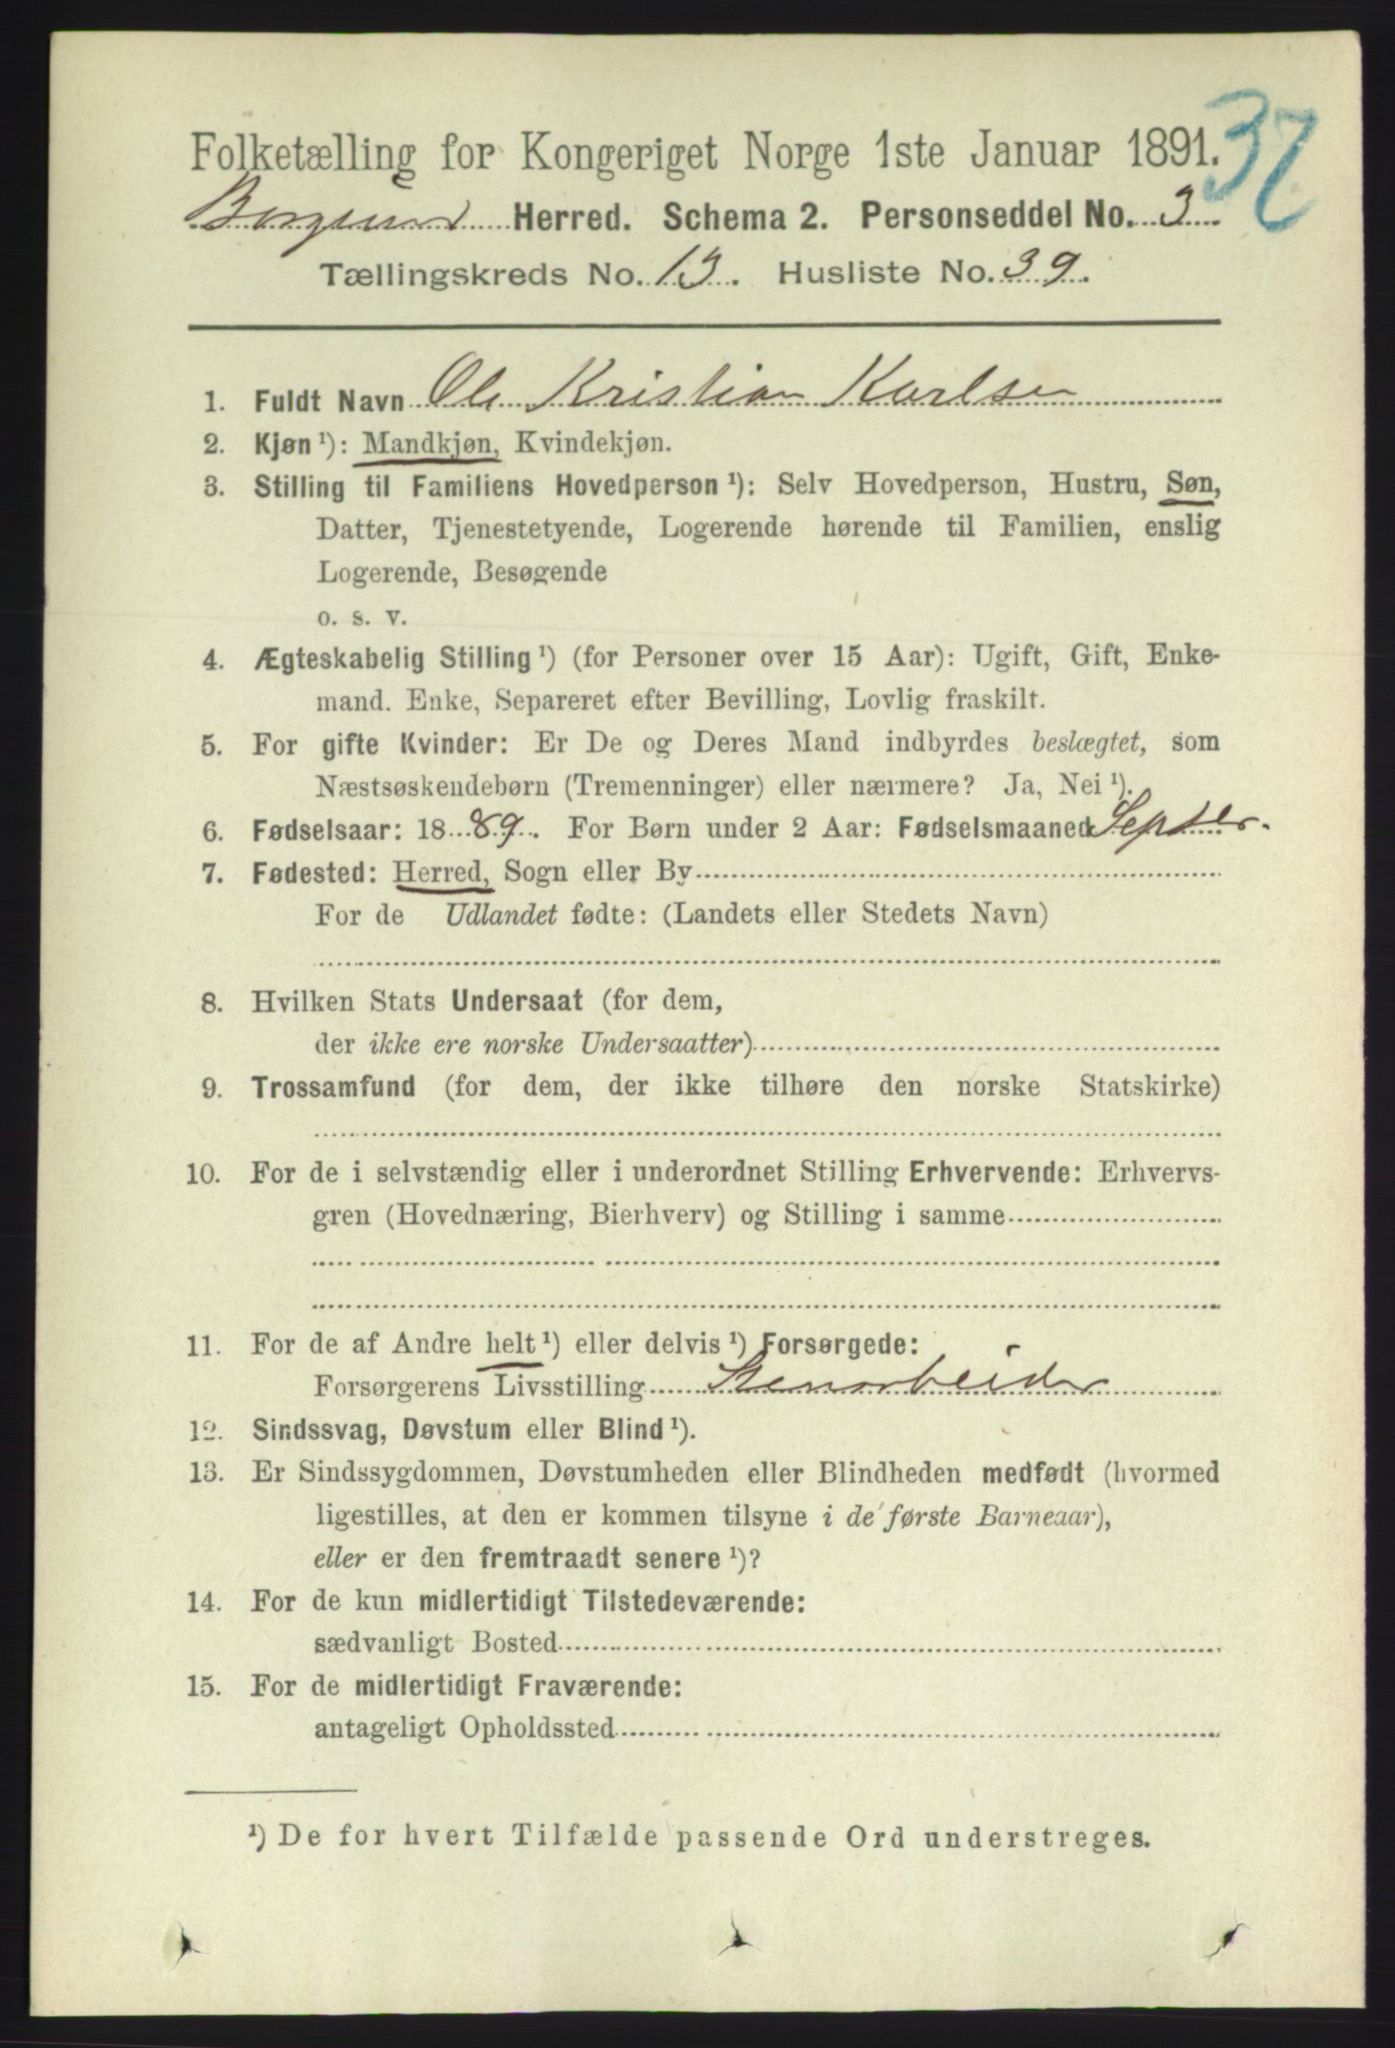 Folketælling for Kongeriget Norge 1ste Januar 1891. 37
Borgund Herred. Schema 2. Personseddel No. 3.
Tællingskreds No. 13. Husliste No. 39.
1. Fuldt Navn Ole Kristian Karlsen
2. Kjøn ¹): Mandkjøn, Kvindekjøn.
3. Stilling til Familiens Hovedperson ¹): Selv Hovedperson, Hustru, Søn,
Datter, Tjenestetyende, Logerende hørende til Familien, enslig
Logerende, Besøgende
o. s. v.
4. Ægteskabelig Stilling ¹) (for Personer over 15 Aar): Ugift, Gift, Enke-
mand. Enke, Separeret efter Bevilling, Lovlig fraskilt.
5. For gifte Kvinder: Er De og Deres Mand indbyrdes beslægtet, som
Næstsøskendebørn (Tremenninger) eller nærmere? Ja, Nei ¹).
6. Fødselsaar: 1889. For Børn under 2 Aar: Fødselsmaaned Septer.
7. Fødested: Herred, Sogn eller By
For de Udlandet fødte: (Landets eller Stedets Navn)
8. Hvilken Stats Undersaat (for dem,
der ikke ere norske Undersaatter)
9. Trossamfund (for dem, der ikke tilhøre den norske Statskirke)
10. For de i selvstændig eller i underordnet Stilling Erhvervende: Erhvervs-
gren (Hovednæring, Bierhverv) og Stilling i samme
11. For de af Andre helt ¹) eller delvis ¹) Forsørgede:
Forsørgerens Livsstilling Stenarbeider
12. Sindssvag, Døvstum eller Blind ¹).
13. Er Sindssygdommen, Døvstumheden eller Blindheden medfødt (hvormed
ligestilles, at den er kommen tilsyne i de første Barneaar),
eller er den fremtraadt senere ¹)?
14. For de kun midlertidigt Tilstedeværende:
sædvanligt Bosted
15. For de midlertidigt Fraværende:
antageligt Opholdssted
¹) De for hvert Tilfælde passende Ord understreges.